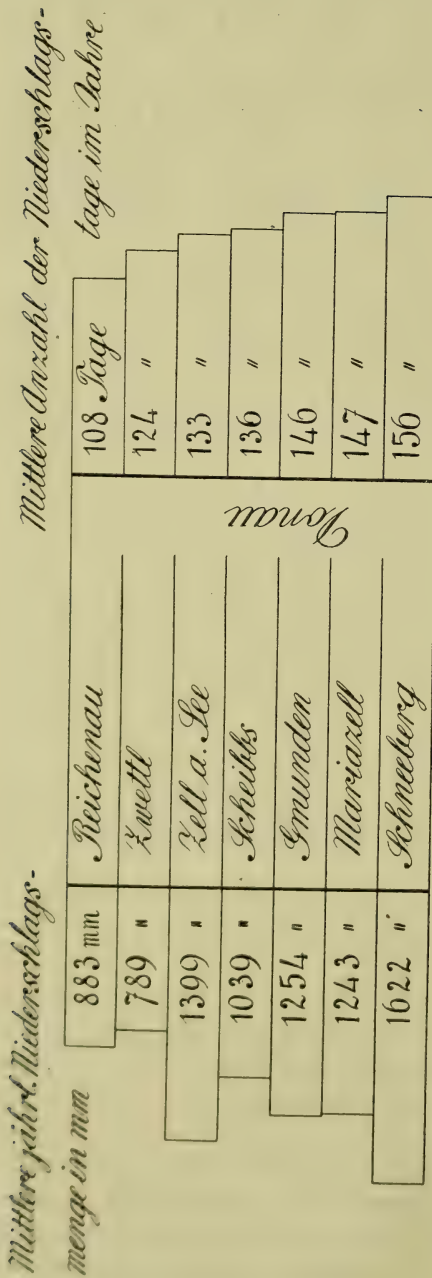 Mittlere jährl. Niederschlags-
menge in mm
Mittlere Anzahl der Niederschlags-
tage im Jahre.
883 mm Reichenau 108 Tage
789 " Zwettl 124 "
1399 " Zell a. See 133 "
1039 " Scheibbs 136 "
1254 " Gmunden 146 "
1243 " Mariazell 147 "
1622 " Schneeberg 156 "
Donau